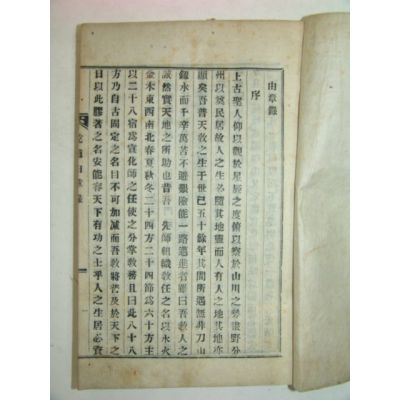 由章錄
序
上古聖人仰以觀於星辰之度俯以察於山川之勢畫野分
州以奠民居故人之生各隨其地靈而人有人之地其地亦
顯矣吾普天教之生于世已五十餘年其間所遇無非刀山
水而千辛萬苦不避艱險能一路邁進者雖曰吾教人之
誠然實天地之所助也昔吾 先師組織教任之名以水火
金木東西南北春夏秋冬二十四方二十四節爲六十方主
以二十八宿爲宣化師之任使之分掌教務者曰此八十八
方乃自古固定之名曰不可加減而吾教將普及於天下之
日以此膠著之名安能容天下有功之士乎人之生居必資
由章錄